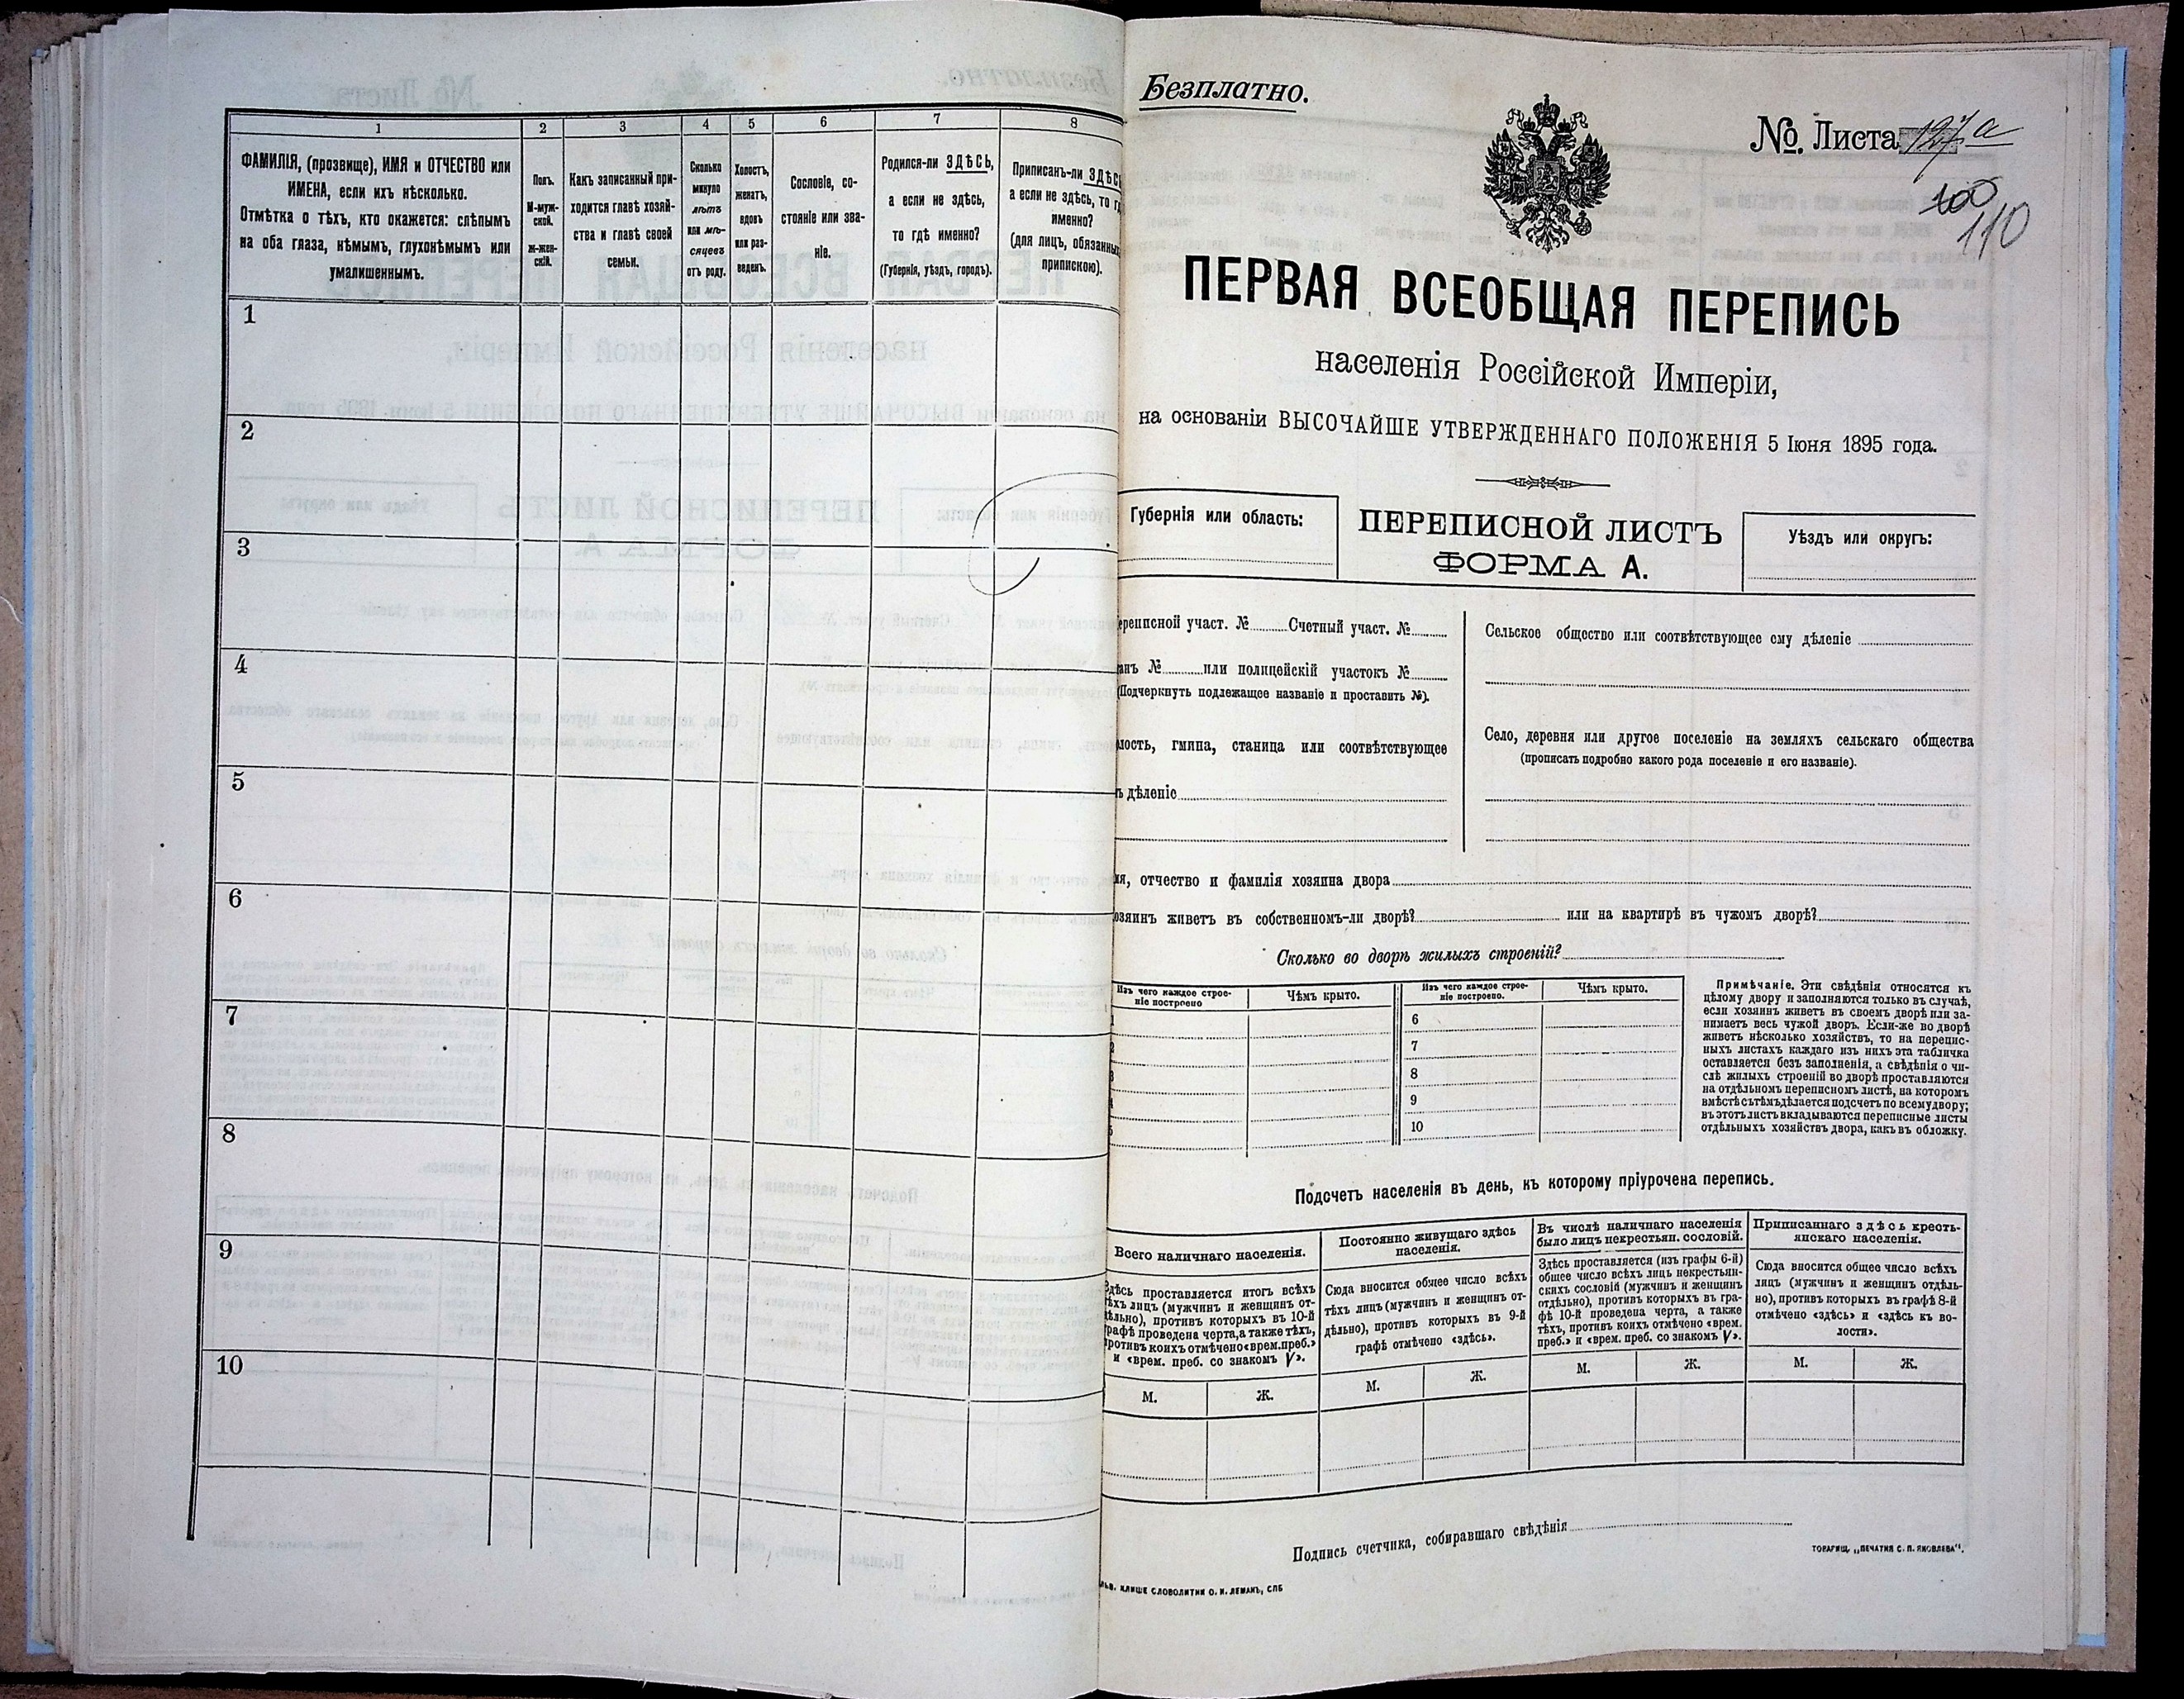 1
2
3
4
5
6
7
8
ФАМИЛІЯ, (прозвище), ИМЯ и ОТЧЕСТВО или
ИМЕНА, если ихъ нѣсколько.
Отмѣтка о тѣхъ, кто окажется: слѣпымъ
на оба глаза, нѣмымъ, глухонѣмымъ или
умалишеннымъ.
Полъ.
М-муж-
ской.
ж-жен-
скій.
Какъ записанный при-
ходится главѣ хозяй-
ства и главѣ своей
семьи.
Сколько
минуло
лѣтъ
или мѣ-
сяцевъ
отъ роду.
Холостъ,
женатъ,
вдовъ
или раз-
веденъ.
Сословіе, со-
стояніе или зва-
ніе.
Родился-ли ЗДѢСЬ,
а если не здѣсь,
то гдѣ именно?
(Губернія, уѣздъ, городъ).
Приписанъ-ли ЗДѢСЬ
а если не здѣсь, то г
именно?
(для лицъ, обязанны
припискою).
1
2
3
4
5
6
7
8
9
10
Безплатно.
№. Листа 127 а
100
110
ПЕРВАЯ ВСЕОБЩАЯ ПЕРЕПИСЬ
населенія Россійской Имперіи,
на основаніи ВЫСОЧАЙШЕ УТВЕРЖДЕННАГО ПОЛОЖЕНІЯ 5 Іюня 1895 года.
Губернія или область:
ПЕРЕПИСНОЙ ЛИСТЪ
ФОРМА А.
Уѣздъ или округъ:
ереписной участ. № Счетный участ. №
анъ № или полицейскій участокъ №
(Подчеркнуть подлежащее названіе и проставить №).
лость, гмина, станица или соотвѣтствующее
ъ дѣленіе
Сельское общество или соотвѣтствующее ему дѣленіе
Село, деревня или другое поселеніе на земляхъ сельскаго общества
(прописать подробно какого рода поселеніе и его названіе).
мя, отчество и фамилія хозяина двора
озяинъ живетъ въ собственномъ-ли дворѣ? или на квартирѣ въ чужомъ дворѣ?
Сколько во дворѣ жилыхъ строеній?
Изъ чего каждое строе-
ніе построено
Чѣмъ крыто.
Изъ чего каждое строе-
ніе построено.
Чѣмъ крыто.
6
7
8
9
10
Примѣчаніе. Эти свѣдѣнія относятся къ
цѣлому двору и заполняются только въ случаѣ,
если хозяинъ живетъ въ своемъ дворѣ или за-
нимаетъ весь чужой дворъ. Если-же во дворѣ
живетъ нѣсколько хозяйствъ, то на перепис-
ныхъ листахъ каждаго изъ нихъ эта табличка
оставляется безъ заполненія, а свѣдѣнія о чи-
слѣ жилыхъ строеній во дворѣ проставляются
на отдѣльномъ переписномъ листѣ, на которомъ
вмѣстѣ съ тѣмъ дѣлается подсчетъ по всему двору;
въ этотъ листъ вкладываются переписные листы
отдѣльныхъ хозяйствъ двора, какъ въ обложку.
Подсчетъ населенія въ день, къ которому пріурочена перепись.
Всего наличнаго населенія.
Здѣсь проставляется итогъ всѣхъ
тѣхъ лицъ (мужчинъ и женщинъ от-
дѣльно), противъ которыхъ въ 10-й
графѣ проведена черта, а также тѣхъ,
противъ коихъ отмѣчено «врем. преб.»
и «врем. преб. со знакомъ V».
М.
Ж.
Постоянно живущаго здѣсь
населенія.
Сюда вносится общее число всѣхъ
тѣхъ лицъ (мужчинъ и женщинъ от-
дѣльно), противъ которыхъ въ 9-й
графѣ отмѣчено «здѣсь».
М.
Ж.
Въ числѣ наличнаго населенія
было лицъ некрестьян. сословій.
Здѣсь проставляется (изъ графы 6-й)
общее число всѣхъ лицъ некрестьян-
скихъ сословій (мужчинъ и женщинъ
отдѣльно), противъ которыхъ въ гра-
фѣ 10-й проведена черта, а также
тѣхъ, противъ коихъ отмѣчено «врем.
преб.» и «врем. преб. со знакомъ V».
М.
Ж.
Приписаннаго здѣсь кресть-
янскаго населенія.
Сюда вносится общее число всѣхъ
лицъ (мужчинъ и женщинъ отдѣль-
но), противъ которыхъ въ графѣ 8-й
отмѣчено «здѣсь» и «здѣсь къ во-
лости».
М.
Ж.
Подпись счетчика, собиравшаго свѣдѣнія
ТОВАРИЩ. „ПЕЧАТНЯ С. П. ЯКОВЛЕВА“.
КЛИШЕ СЛОВОЛИТНИ О. И. ЛЕМАНЪ, СПБ